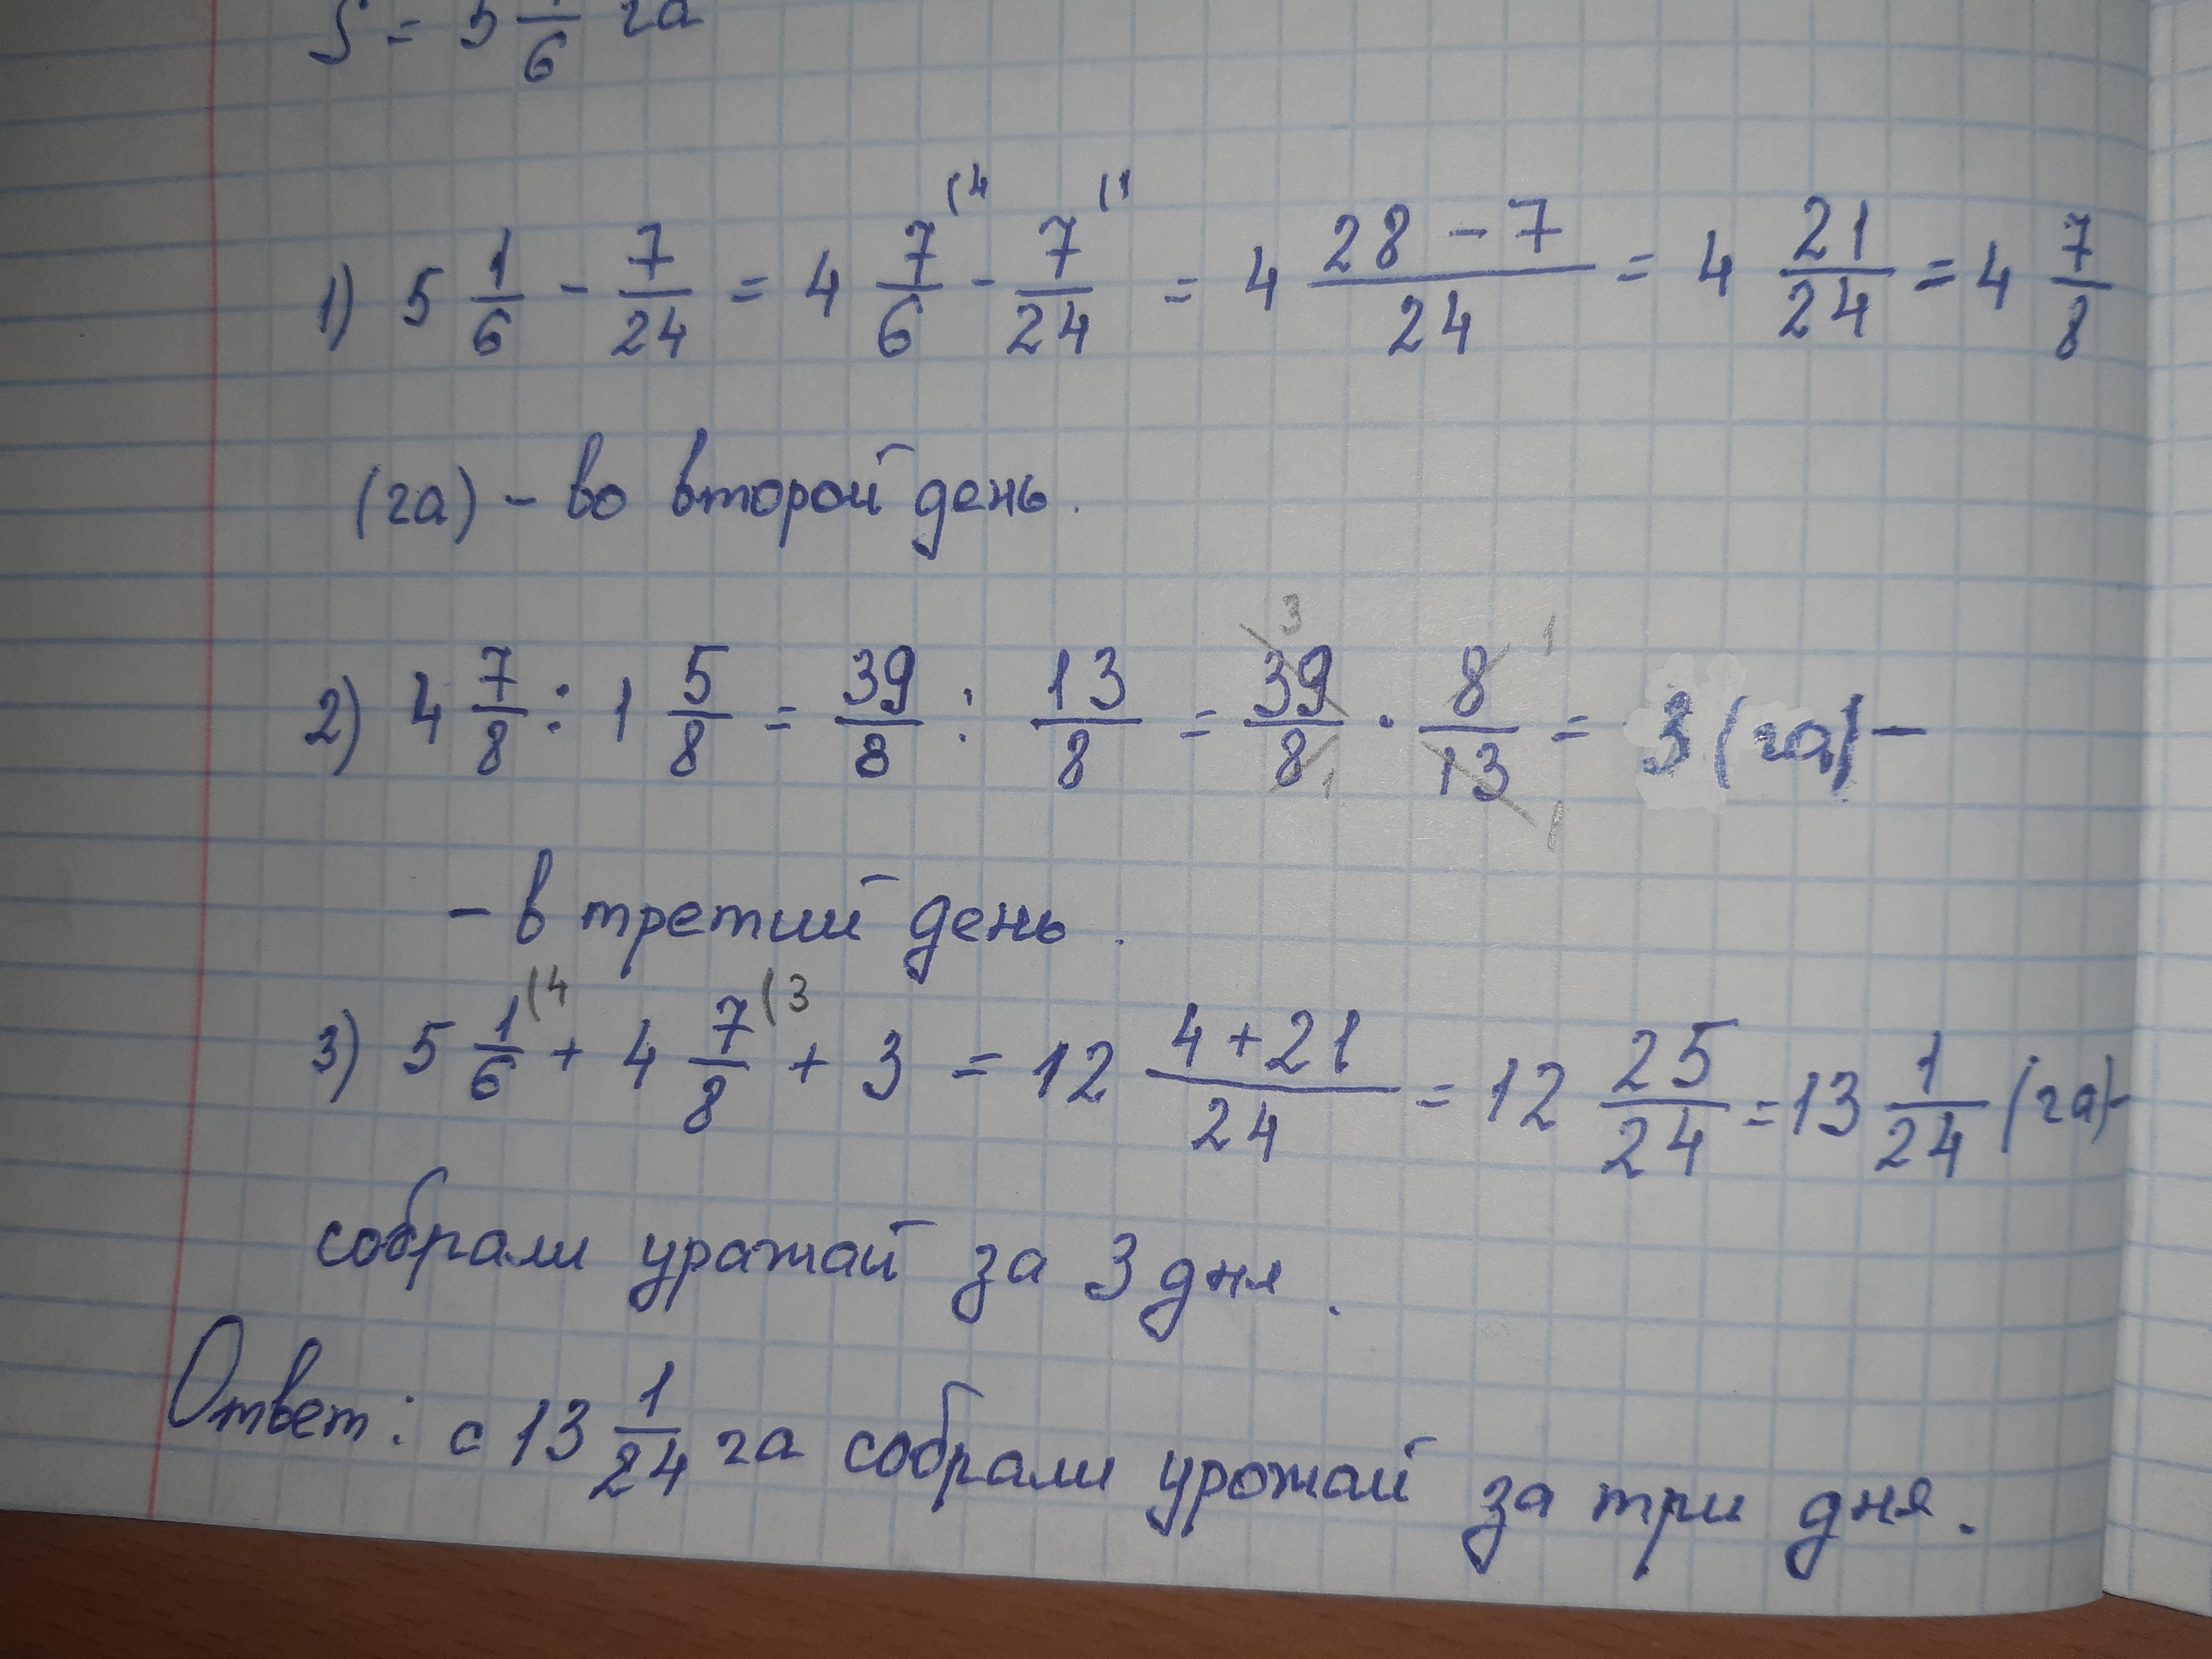 S = 5 1/6 га
1) 5 1/6 - 7/24 = 4 7/6 (4 - 7/24 (1 = 4 (28 - 7)/24 = 4 21/24 = 4 7/8
(га) - во второй день.
2) 4 7/8 : 1 5/8 = 39/8 : 13/8 = 39/8 · 8/13 = 3 (га) -
3 1 1 1
- в третий день.
3) 5 1/6 (4 + 4 7/8 (3 + 3 = 12 (4 + 21)/24 = 12 25/24 = 13 1/24 (га) -
собрали уражай за 3 дня.
Ответ: с 13 1/24 га собрали урожай за три дня.